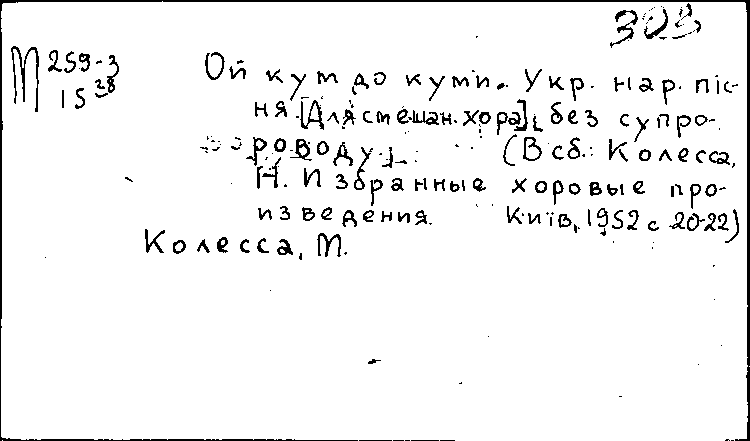 303
М 259-3
15 28
Ой кум до куми. Укр. нар. піс-
ня [Для смешан. хора], без супро-
роводу.
(В сб.: Колесса,
Н. Избранные хоровые про-
изведения. Київ, 1952 с 20-22)
Колесса, М.